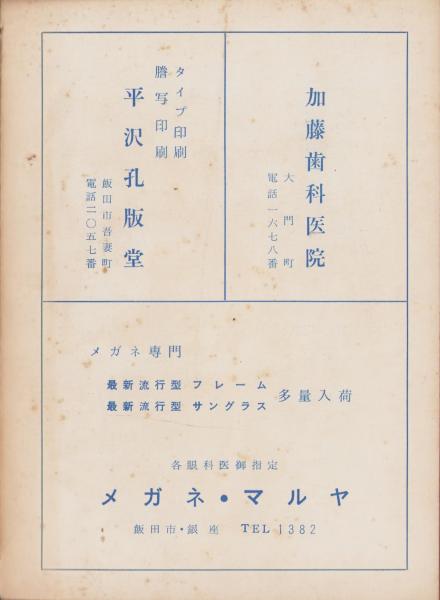 加藤歯科医院
大門町
電話一六七八番
タイプ印刷
謄写印刷
平沢孔版堂
飯田市吾妻町
電話二〇五七番
メガネ専門
最新流行型 フレーム
最新流行型 サングラス
多量入荷
各眼科医御指定
メガネ・マルヤ
飯田市・銀座 TEL 1382